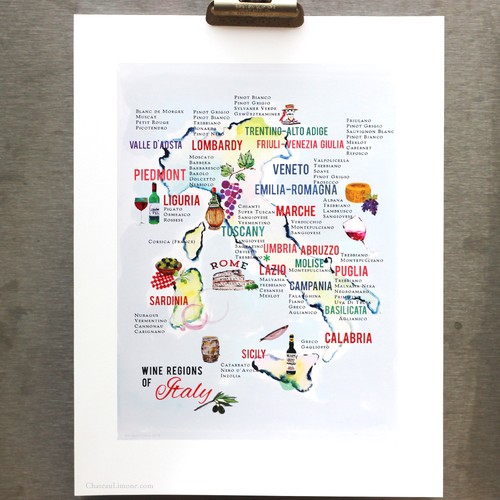 Pinot Bianco
Pinot Grigio
Sylvaner Verde
Gewürztraminer
Blanc de Morgex
Muscat
Petit Rouge
Picotendro
Pinot Grigio
Pinot Bianco
Trebbiano
Bonarda
Pinot Nero
Friulano
Pinot Grigio
Sauvignon Blanc
Pinot Bianco
Merlot
Cabernet
Refosco
TRENTINO-ALTO ADIGE
VALLE D'AOSTA
LOMBARDY
FRIULI-VENEZIA GIULIA
Moscato
Barbera
Barbaresco
Barolo
Dolcetto
Nebbiolo
Valpolicella
Trebbiano
Soave
Pinot Grigio
Prosecco
VENETO
PIEDMONT
EMILIA-ROMAGNA
LIGURIA
Pigato
Ormeasco
Rossese
Albana
Trebbiano
Lambrusco
Sangiovese
Chianti
Super Tuscan
Sangiovese
Vermentino
MARCHE
Verdicchio
Montepulciano
Sangiovese
TUSCANY
Corsica (France)
Sangiovese
Orvieto
Trebbiano
UMBRIA
ABRUZZO
Trebbiano
Montepulciano
ROME
LAZIO
MOLISE
Montepulciano
PUGLIA
Malvasia
Trebbiano
Cesanese
Merlot
CAMPANIA
Falanghina
Fiano
Greco
Aglianico
Trebbiano
Malvasia Nera
Negroamaro
Uva di Troia
SARDINIA
Nuragus
Vermentino
Cannonau
Carignano
BASILICATA
Aglianico
CALABRIA
Greco
Gaglioppo
SICILY
Catarratto
Nero d'Avola
Inzolia
WINE REGIONS
OF Italy
ChateauLimone.com